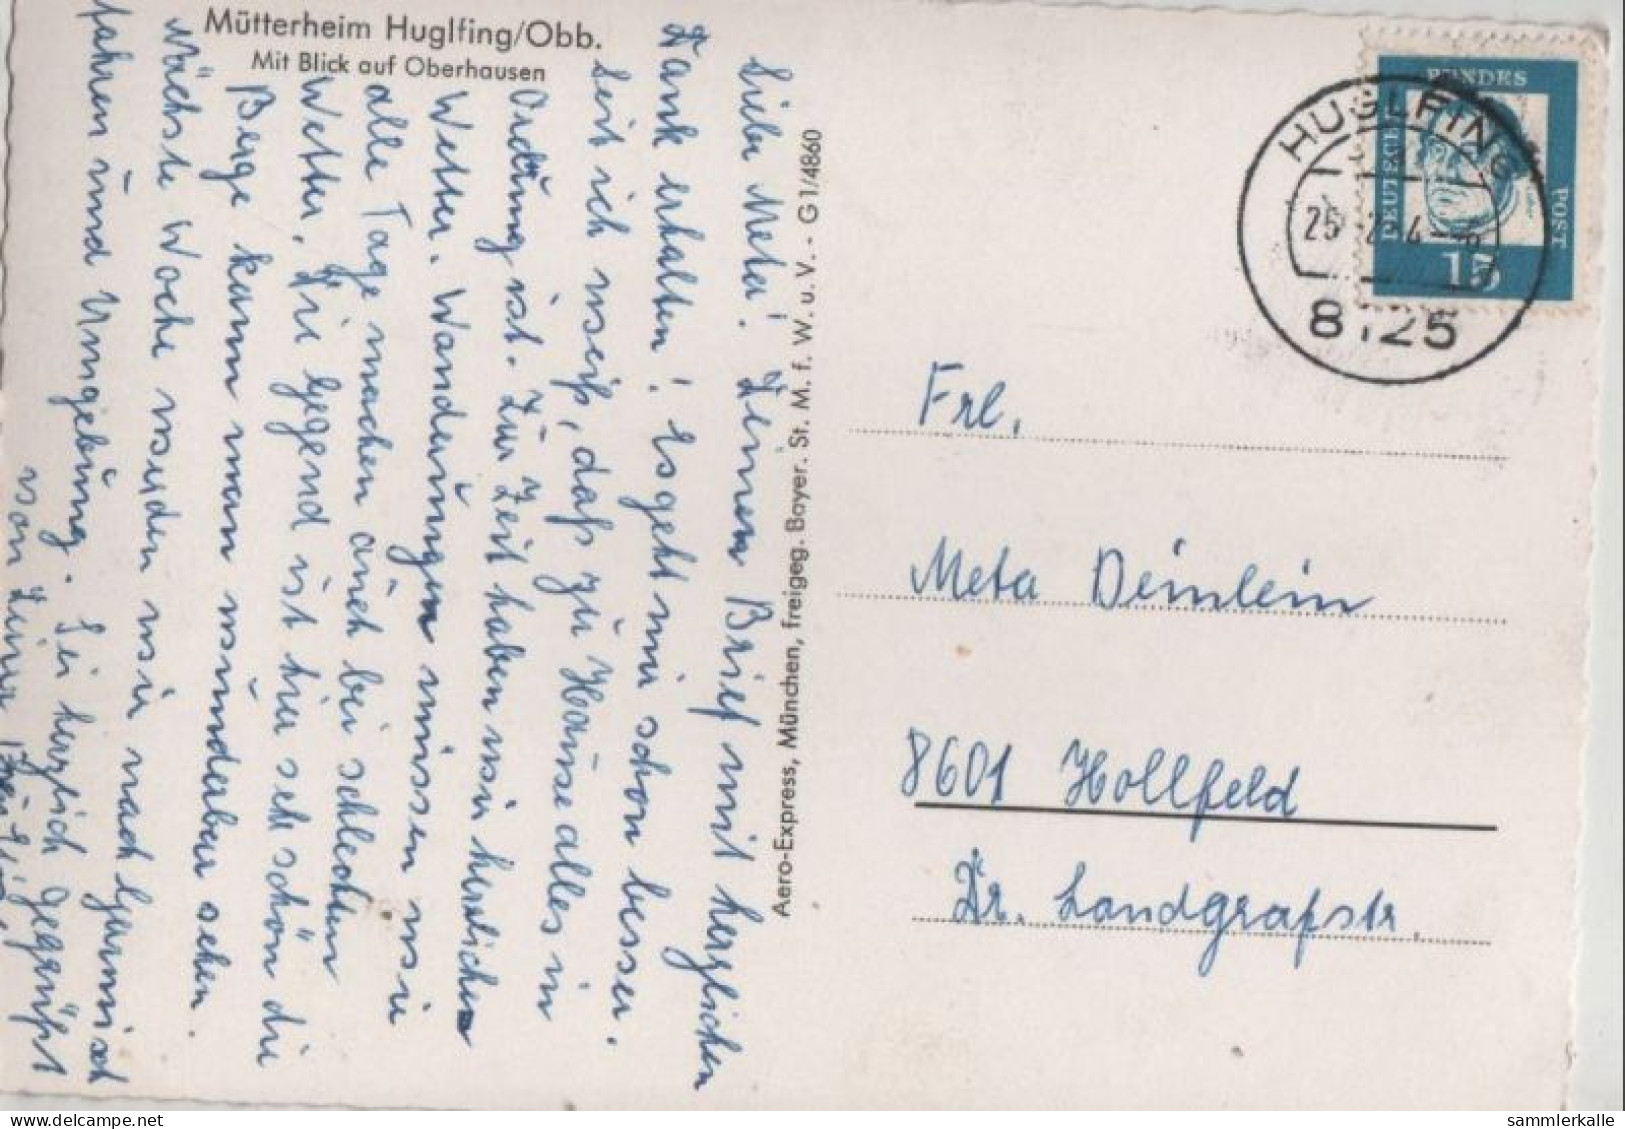 Mütterheim Huglfing/Obb.
Mit Blick auf Oberhausen
Liebe Meta! Deinen Brief mit herzlichen
Dank erhalten! Es geht mir schon besser.
Seit ich weiß, daß zu Hause alles in
Ordnung ist. Zur Zeit haben wir herrlichen
Wetter. Wanderungen müssen wir
alle Tage machen auch bei schlechten
Wetter. Die Gegend ist hier sehr schön die
Berge kann man wunderbar sehen.
Nächste Woche werden wir nach Garmisch
fahren und Umgebung. Sei herzlich gegrüßt
von Deiner
Aero-Express, München, freigeg. Bayer. St. M. f. W. u. V. - G 1/4860
DEUTSCHE
BUNDES
POST
15
HUGLFING
25
8125
Frl.
Meta Deinlein
8601 Hollfeld
Dr. Landgrafstr.
sammlerkalle